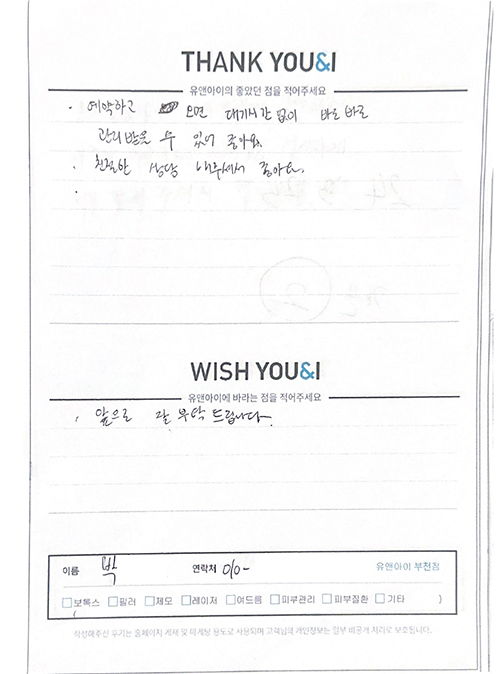 THANK YOU&I
유앤아이의 좋았던 점을 적어주세요
· 예약하고 오면 대기시간 없이 바로바로
관리받을 수 있어 좋아요.
· 친절한 상담 해주셔서 좋아요.
·
WISH YOU&I
유앤아이에 바라는 점을 적어주세요
· 앞으로 잘 부탁드립니다.
이름 박 연락처 010- 유앤아이 부천점
□보톡스 □필러 □제모 □레이저 □여드름 □피부관리 □피부질환 □기타 )
(
작성해주신 후기는 홈페이지 게재 및 마케팅 용도로 사용되며 고객님의 개인정보는 일부 비공개 처리로 보호됩니다.